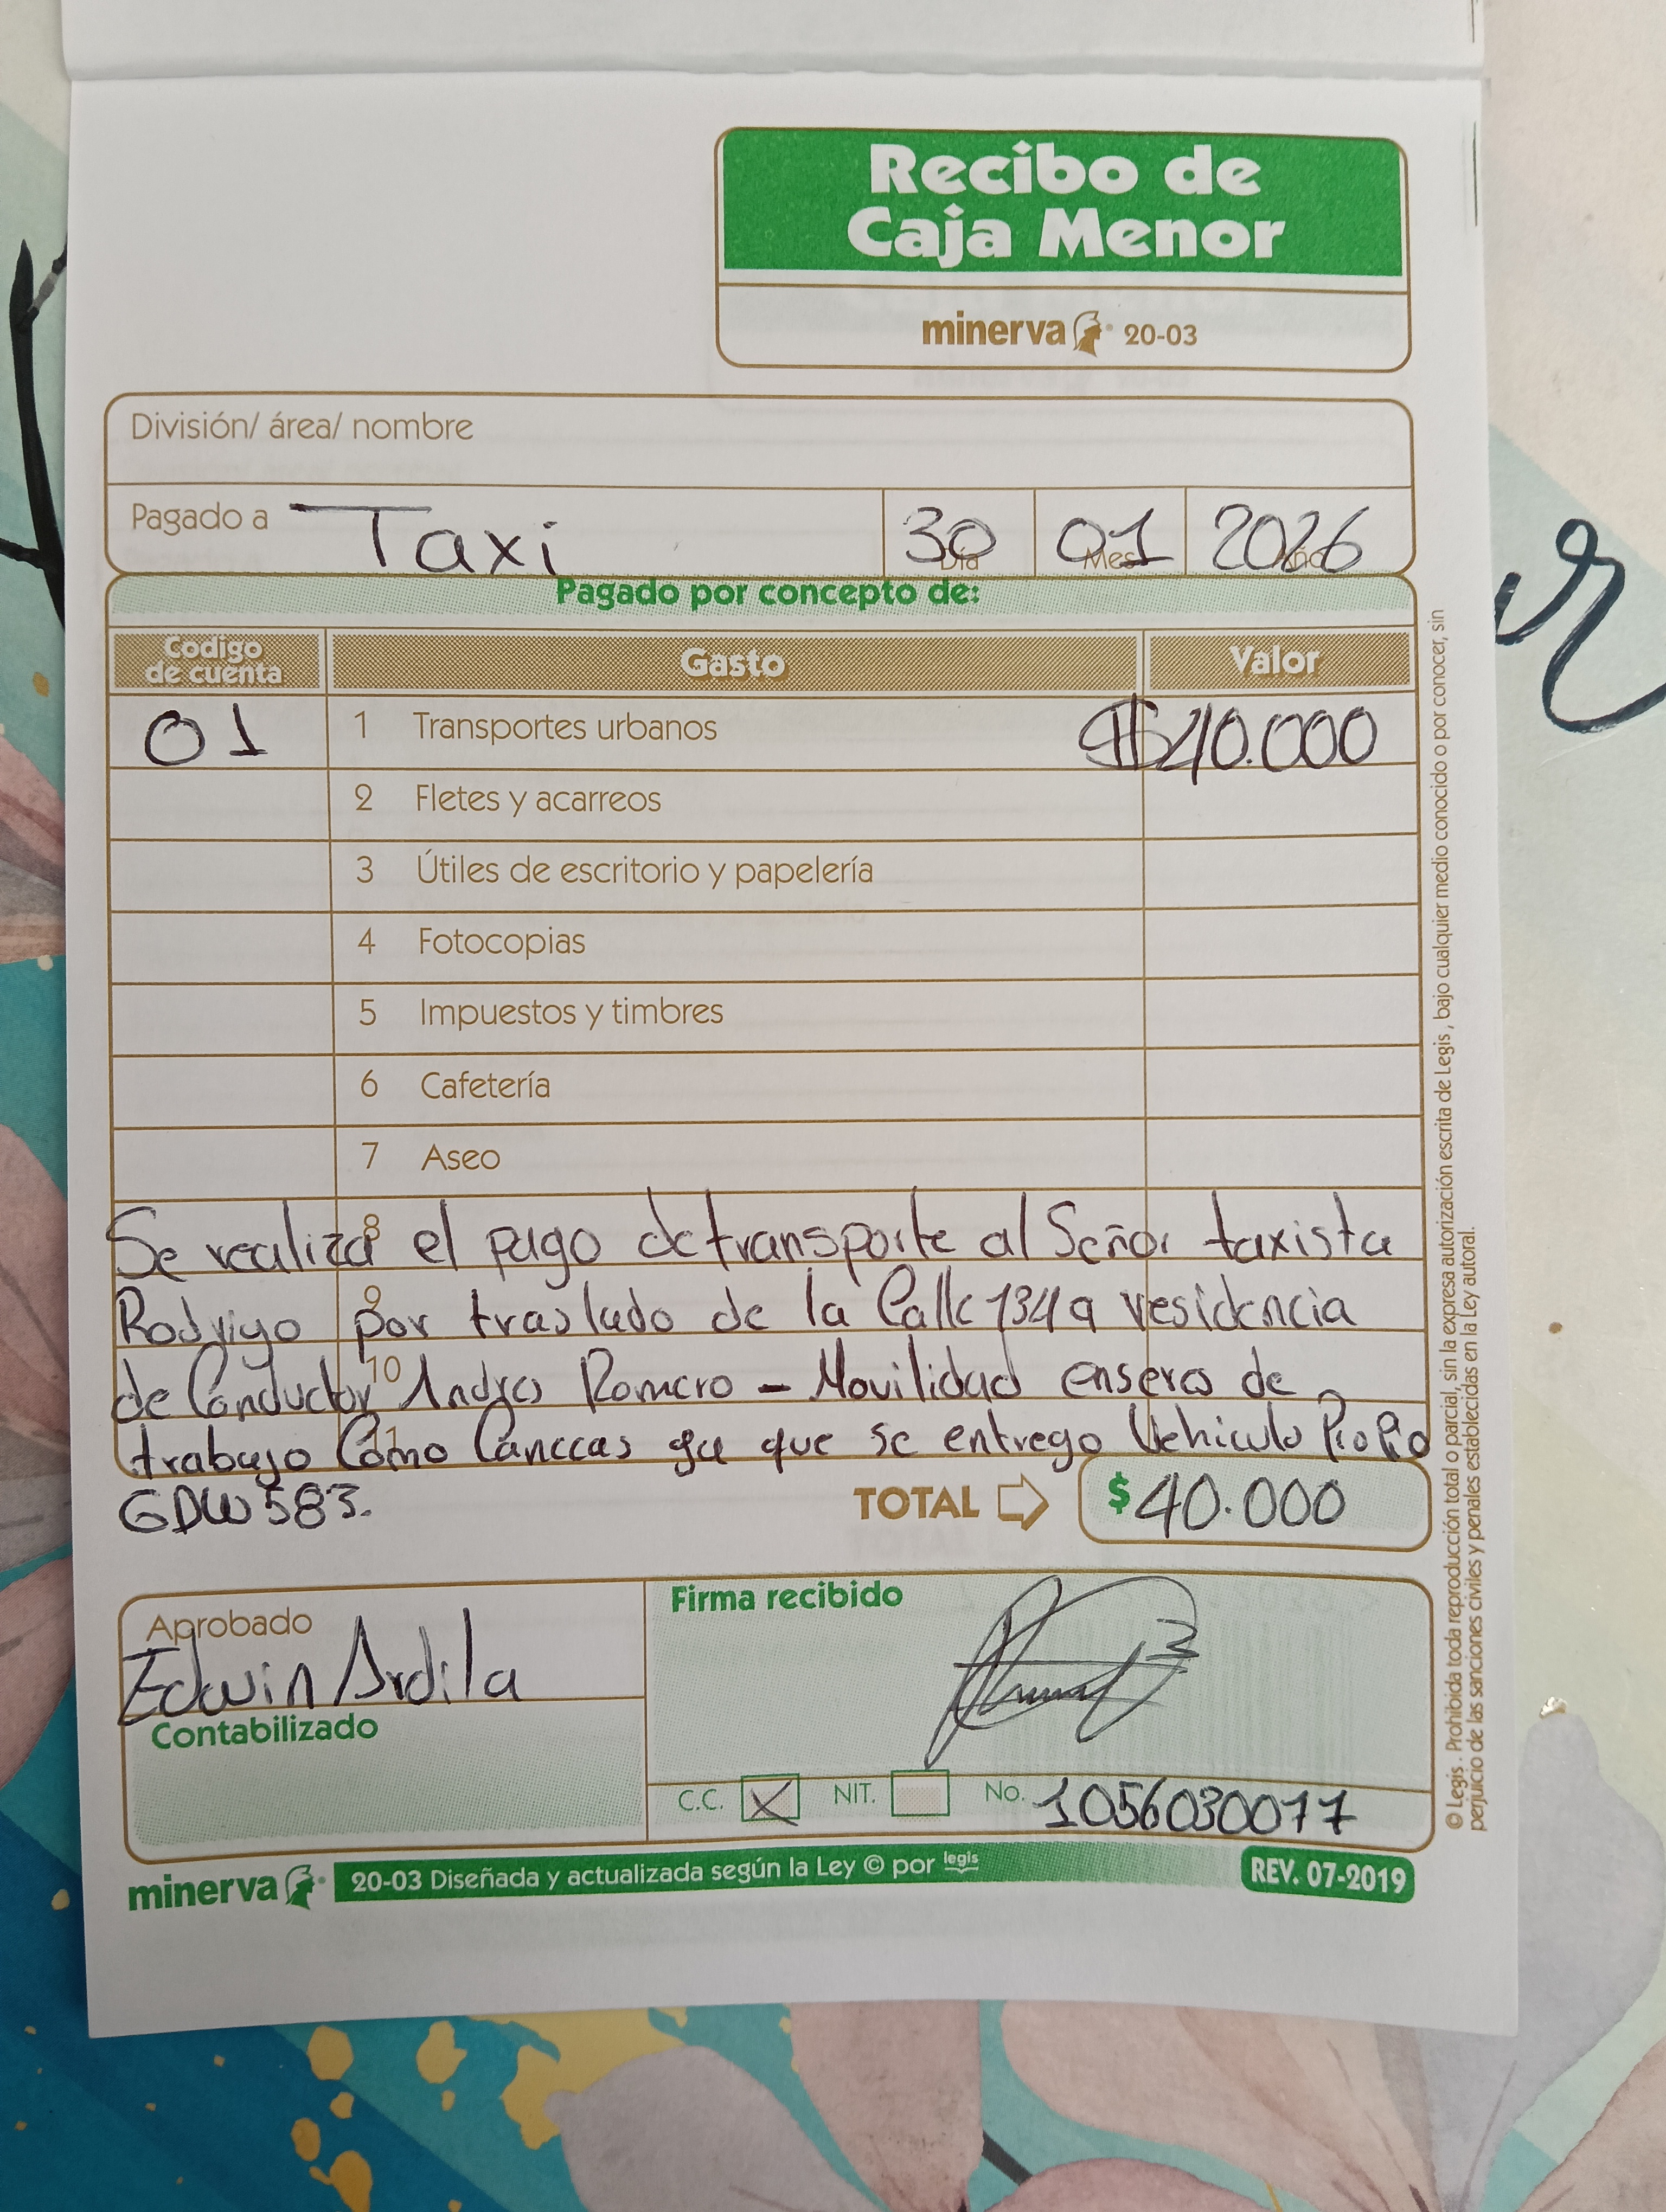 Recibo de
Caja Menor
minerva 20-03
División/ área/ nombre
Pagado a Taxi 30 Día 01 Mes 2026 Año
Pagado por concepto de:
Codigo de cuenta Gasto Valor
01 1 Transportes urbanos $40.000
2 Fletes y acarreos
3 Útiles de escritorio y papelería
4 Fotocopias
5 Impuestos y timbres
6 Cafetería
7 Aseo
8
Se realiza el pago de transporte al Señor taxista
9
Rodrigo por traslado de la Calle 134 a residencia
10
de Conductor Andres Romero - Movilidad enseres de
11
trabajo Como Caneccas ya que se entrego Vehiculo Propio
GDW583.
TOTAL $40.000
Aprobado
Edwin Ardila
Contabilizado
Firma recibido
C.C. X NIT. No. 1056030077
minerva 20-03 Diseñada y actualizada según la Ley © por legis REV. 07-2019
© Legis. Prohibida toda reproducción total o parcial, sin la expresa autorización escrita de Legis, bajo cualquier medio conocido o por conocer, sin
perjuicio de las sanciones civiles y penales establecidas en la Ley autoral.